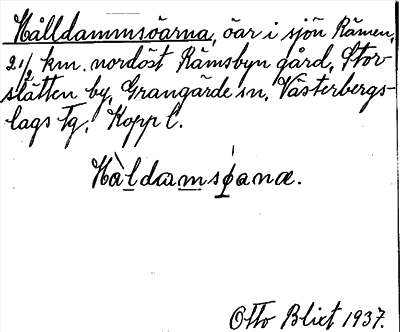 Hålldammsöarna, öar i sjön Rämen,
2 1/2 km. nordöst Rämsbyn gård, Stor-
slätten by, Grangärde sn, Västerbergs-
lags Tg, Kopp l.
Hàldamsøanæ.
Otto Blixt 1937.